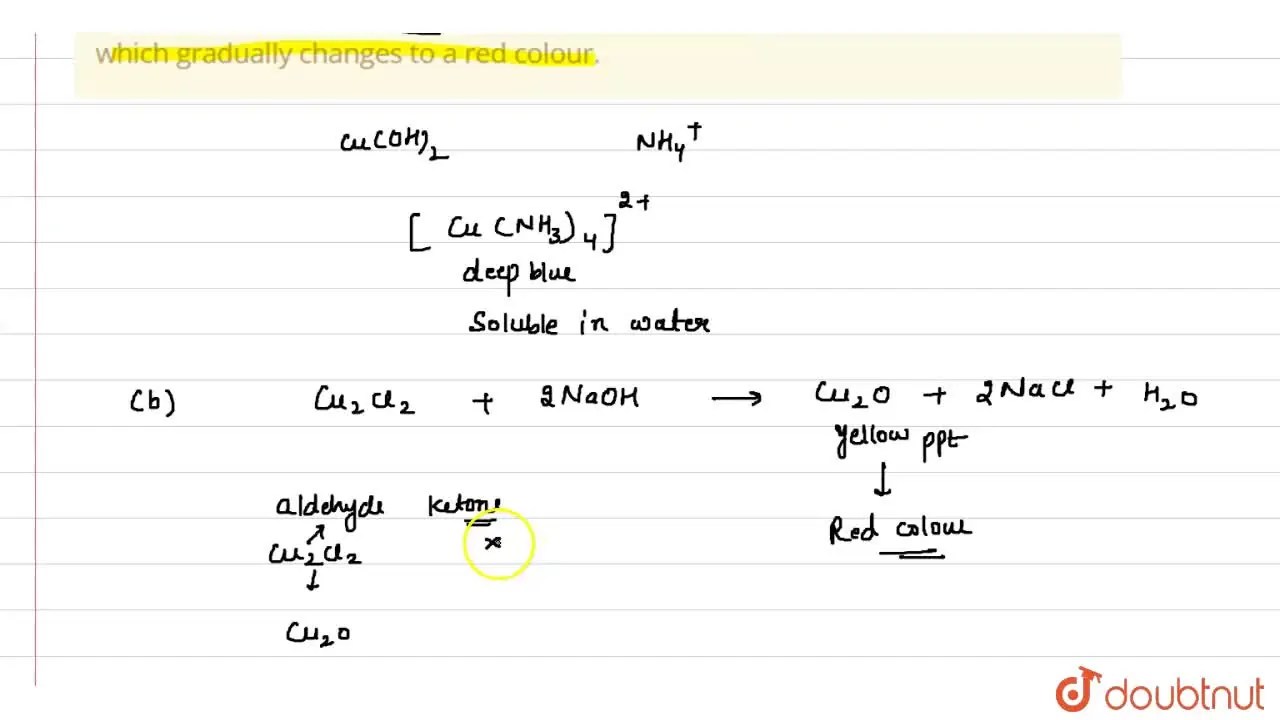 which gradually changes to a red colour.
Cu(OH)2 NH4+
[Cu(NH3)4]2+
deep blue
Soluble in water
(b) Cu2Cl2 + 2NaOH → Cu2O + 2NaCl + H2O
yellow ppt
↓
Red colour
aldehyde ketone
↗ ×
Cu2Cl2
↓
Cu2O
doubtnut